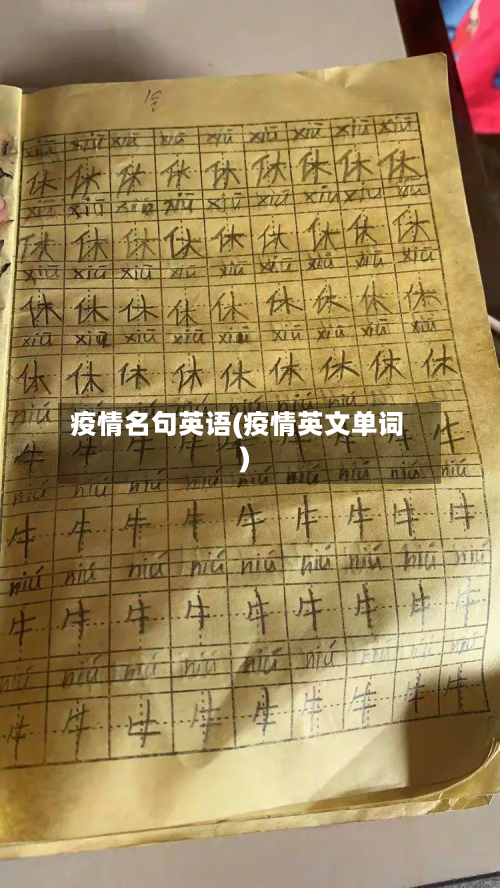 xiū xiū xiū xiū xiū xiū xiū xiū xiū
休 休 休 休 休 休 休 休 休
xiū xiū xiū xiū xiū xiū xiū xiū xiū
休 休 休 休 休 休 休 休 休
xiū xiū xiū xiū xiū xiū xiū xiū xiū
休 休 休 休 休 休 休 休 休
xiū xiū xiū xiū xiū xiū xiū xiū xiū
休 休 休 休 休 休 休 休 休
疫情名句英语(疫情英文单词
)
牛 牛 牛 牛 牛 牛 牛 牛 牛
niú niú niú niú niú niú niú niú niú
牛 牛 牛 牛 牛 牛 牛 牛 牛
niú niú niú niú niú niú niú niú niú
牛 牛 牛 牛 牛 牛 牛 牛 牛